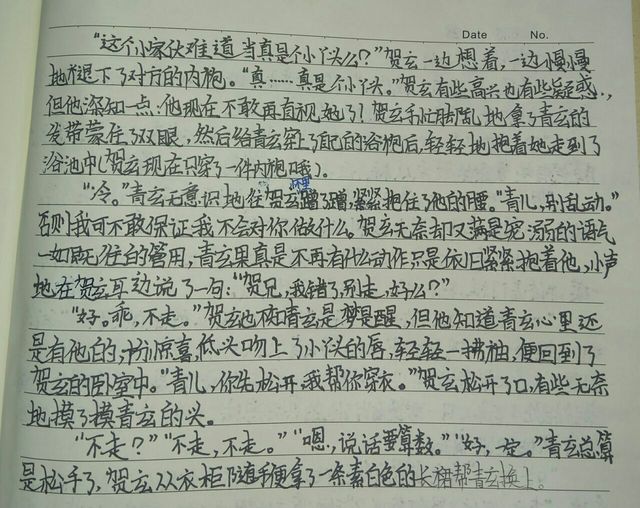 Date No.
"这个小家伙难道当真是个小丫头么?"贺玄一边想着,一边慢慢
地褪下了对方的内袍。"真……真是个小丫头。"贺玄有些高兴也有些疑惑.,
但他深知一点:他现在不敢再直视她了!贺玄手忙脚乱地拿了青玄的
发带蒙住了双眼,然后给青玄穿上了自己的浴袍后,轻轻地抱着她走到了
浴池中(贺玄现在只穿了一件内袍哦)。
"冷。"青玄无意识地往贺玄怀里蹭了蹭,紧紧抱住了他的腰。"青儿,别乱动。"
否则我可不敢保证我不会对你做什么。贺玄无奈却又满是宠溺的语气
一如既往的管用,青玄果真是不再有什么动作只是依旧紧紧抱着他,小声
地在贺玄耳边说了一句:"贺兄,我错了,别走,好么?"
"好。乖,不走。"贺玄也不晴青玄是梦是醒,但他知道青玄心里还
是有他的,十分惊喜,低头吻上了小丫头的唇,轻轻一拂袖,便回到了
贺玄的卧室中。"青儿,你先松开,我帮你穿衣。"贺玄松开了口,有些无奈
地摸了摸青玄的头。
"不走?""不走,不走。""嗯,说话要算数。""好,一定。"青玄总算
是松手了,贺玄从衣柜随手便拿了一条素白色的长裙帮青玄换上。